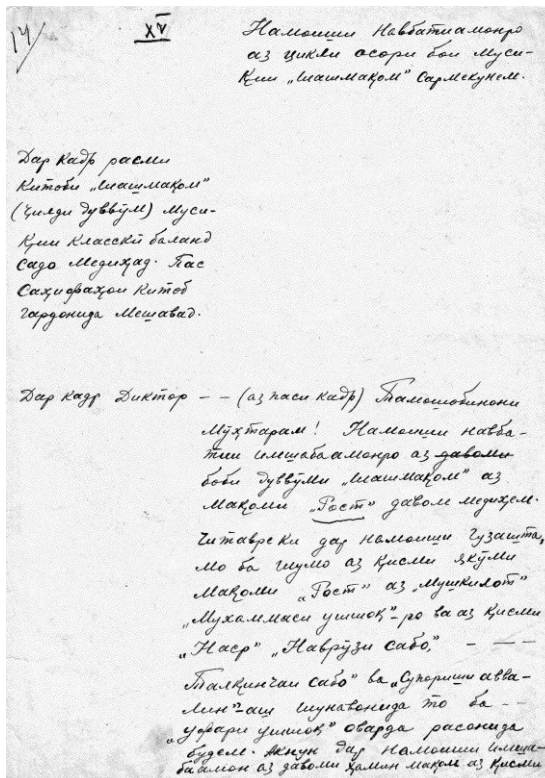 14/
XV
Намоиши Навбатиамонро
аз цикли осори бои Муси-
қии „Шашмақом" Сармекунем.
Дар Кадр расми
Китоби „Шашмақом"
(ҷилди дуввӯм) Муси-
қии Классикӣ баланд
садо Медиҳад. Пас
Саҳифаҳои Китоб
гардонида Мешавад.
Дар кадр Диктор - - (аз паси кадр) Тамошобинони
Мӯҳтарам! Намоиши навба-
тии имшабаамонро аз давоми
боби дуввӯми „Шашмақом" аз
Мақоми „Рост" давом медиҳем.
Читавреки дар намоиши гузашта,
мо ба шумо аз қисми якӯми
Мақоми „Рост" аз „Мушкилот"
„Мухаммаси ушшоқ"-ро ва аз қисми
„Наср" „Наврӯзи сабо", - - -
Талқинчаи сабо" ва „Супориши авва-
лин"-аш шунавонида то ба - -
„уфари ушшоқ" оварда расонида
будем. Акнун дар намоиши имша-
баамон аз давоми ҳамин мақом аз қисми